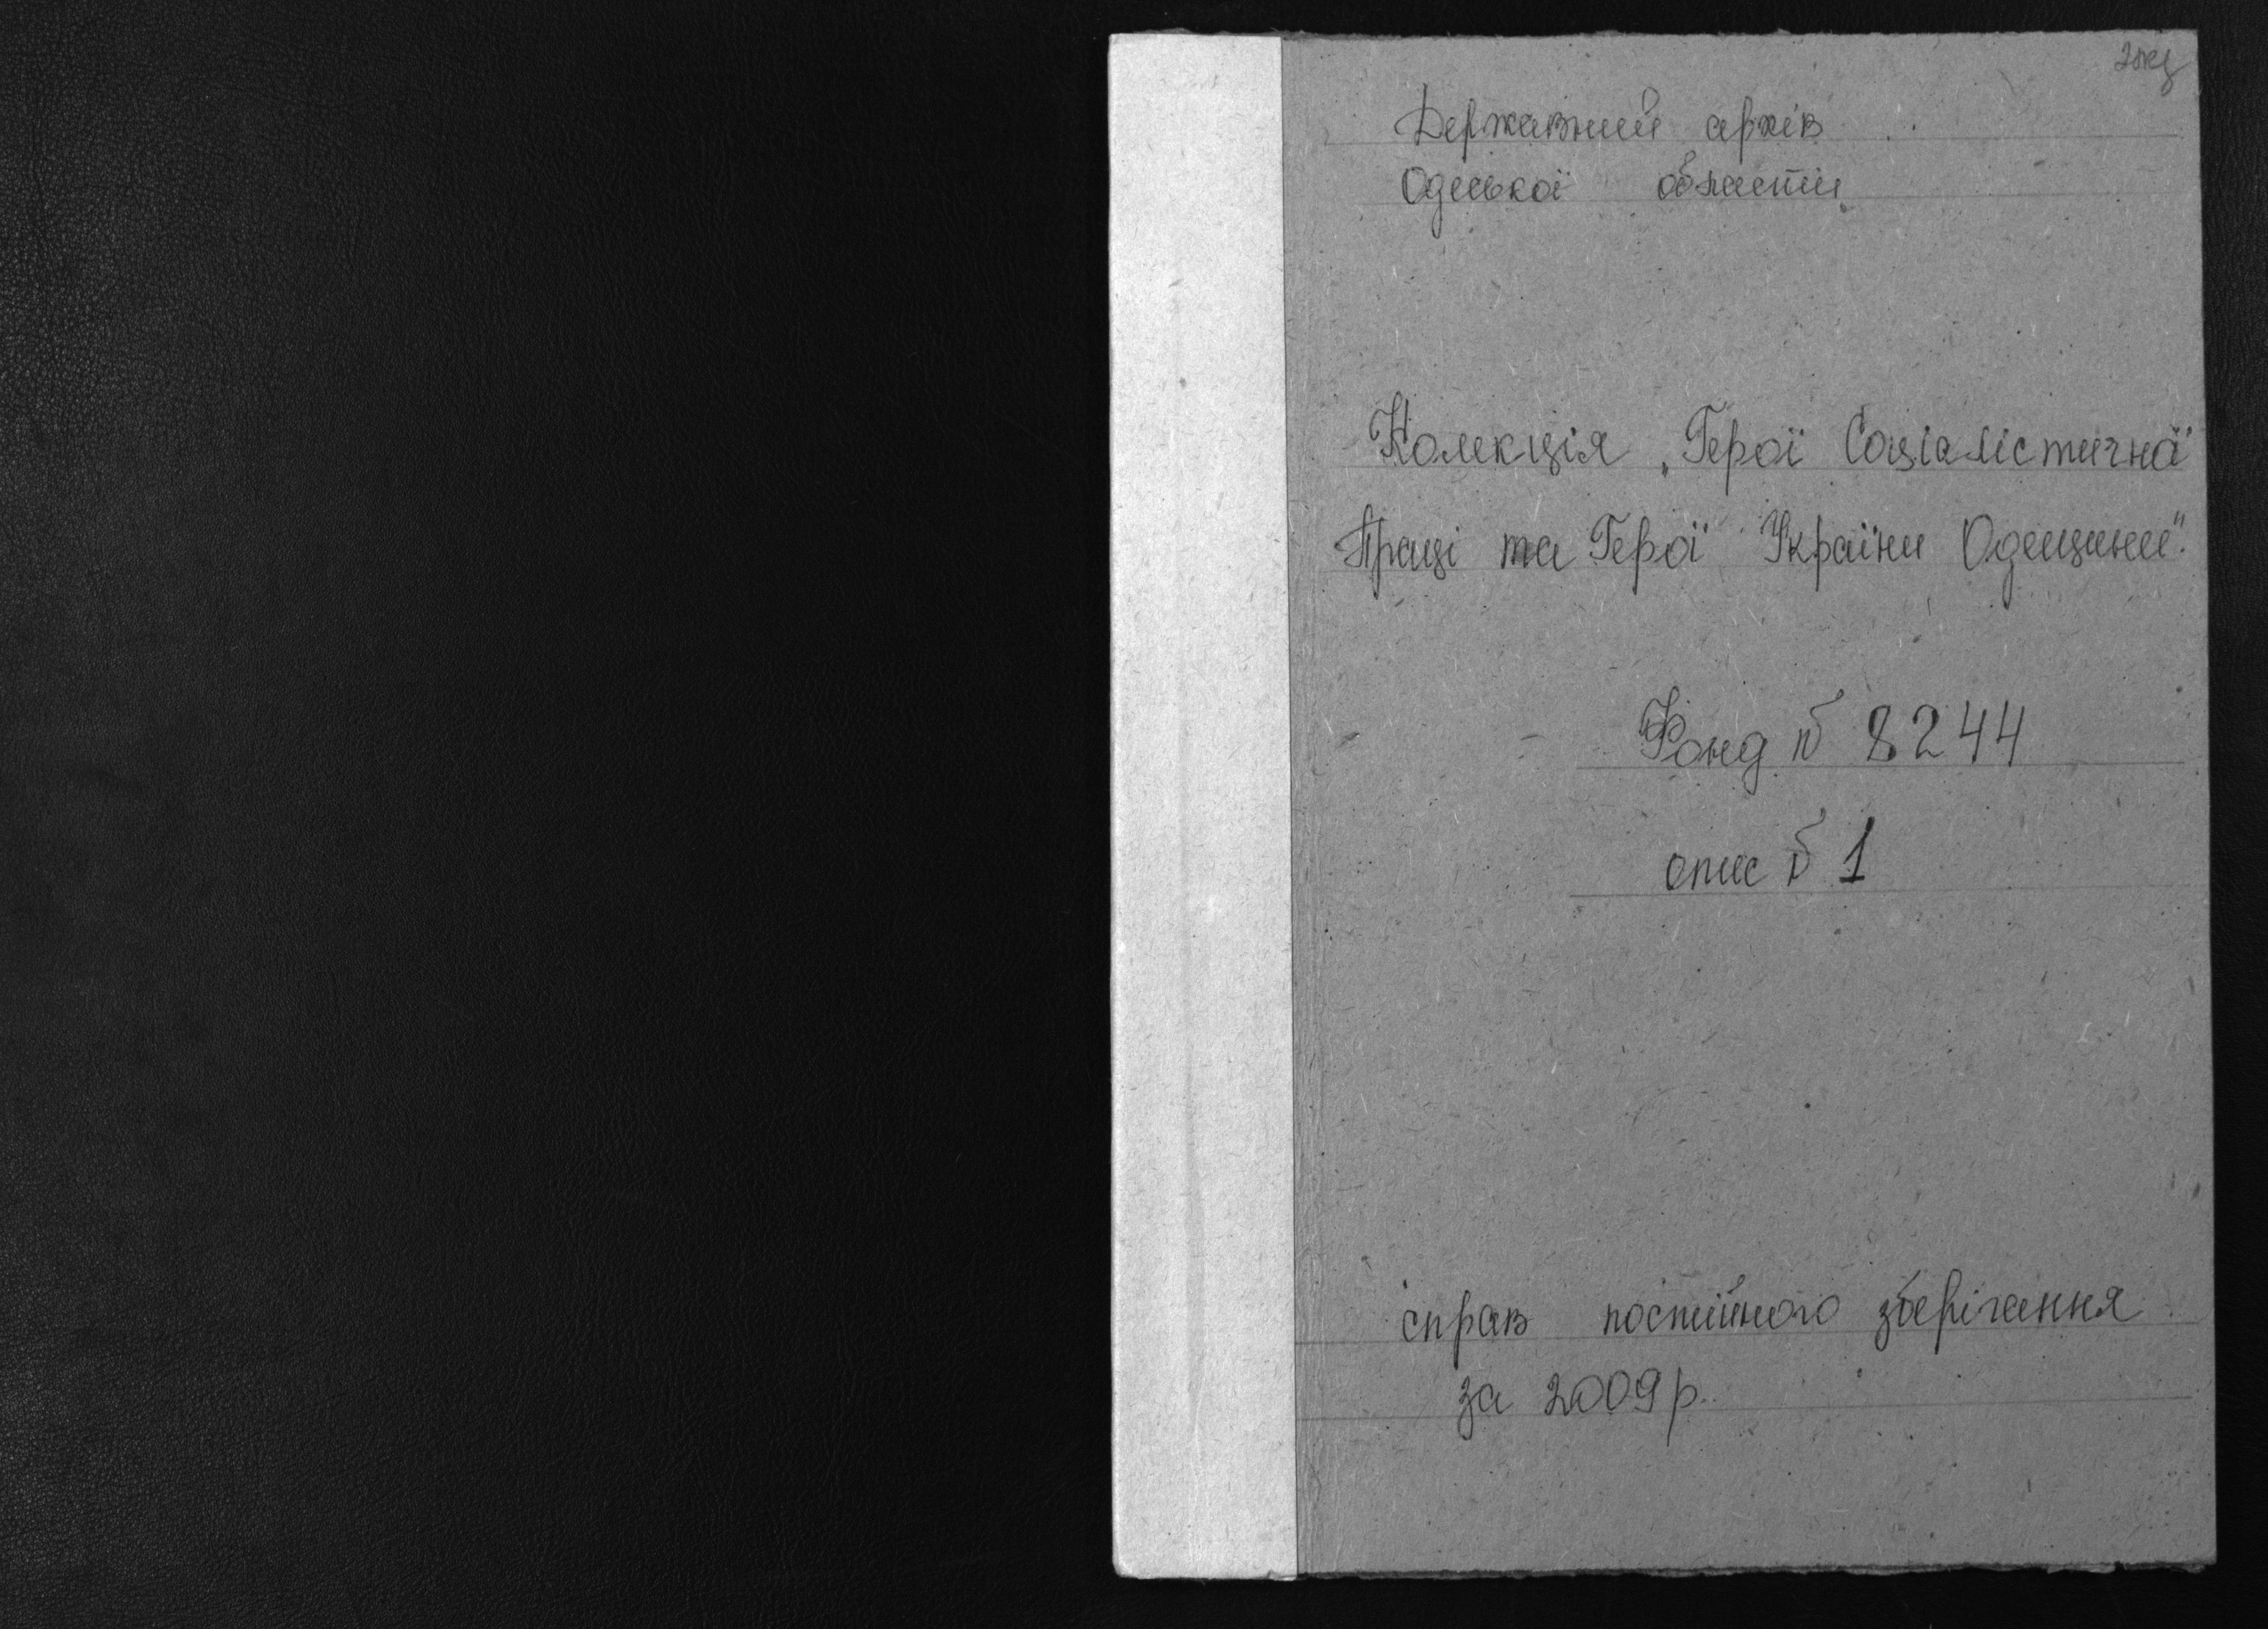 2 экз
Державний архів
Одеської області
Колекція „Герої Соціалістичної
Праці та Герої України Одещини".
Фонд № 8244
опис № 1
справ постійного зберігання
за 2009 р.